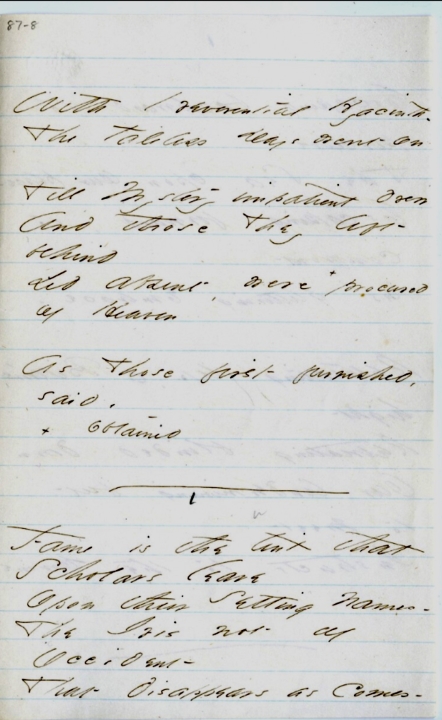 87-8
With reverential Hyacinth -
The taleless days went on
Till Mystery impatient drew
And those They left
behind
Led absent, were + procured
of Heaven
As Those first furnished,
said.
+ obtained
Fame is the tint that
Scholars leave
Upon their Setting Names -
The Iris not of
Occident -
That disappears as comes -